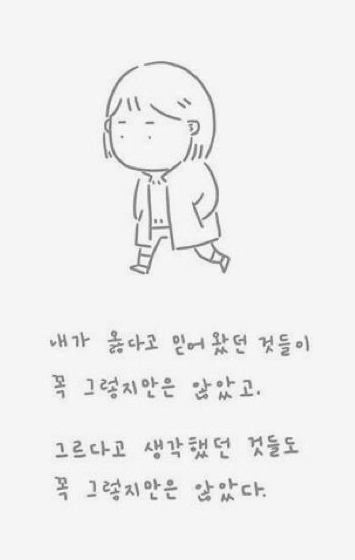 내가 옳다고 믿어왔던 것들이
꼭 그렇지만은 않았고.
그르다고 생각했던 것들도
꼭 그렇지만은 않았다.